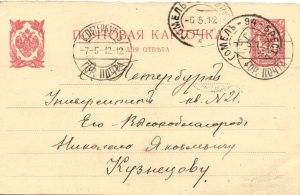 ПОЧТОВАЯ КАРТОЧКА
ДЛЯ ОТВѢТА
ГОМЕЛЬ
-6 5.12
-7-5-12-12
ГОР. ПОЧТА
Петербургъ
Университетъ кв. №21.
Его Высокоблагород.
Николаю Яковлевичу
Кузнецову